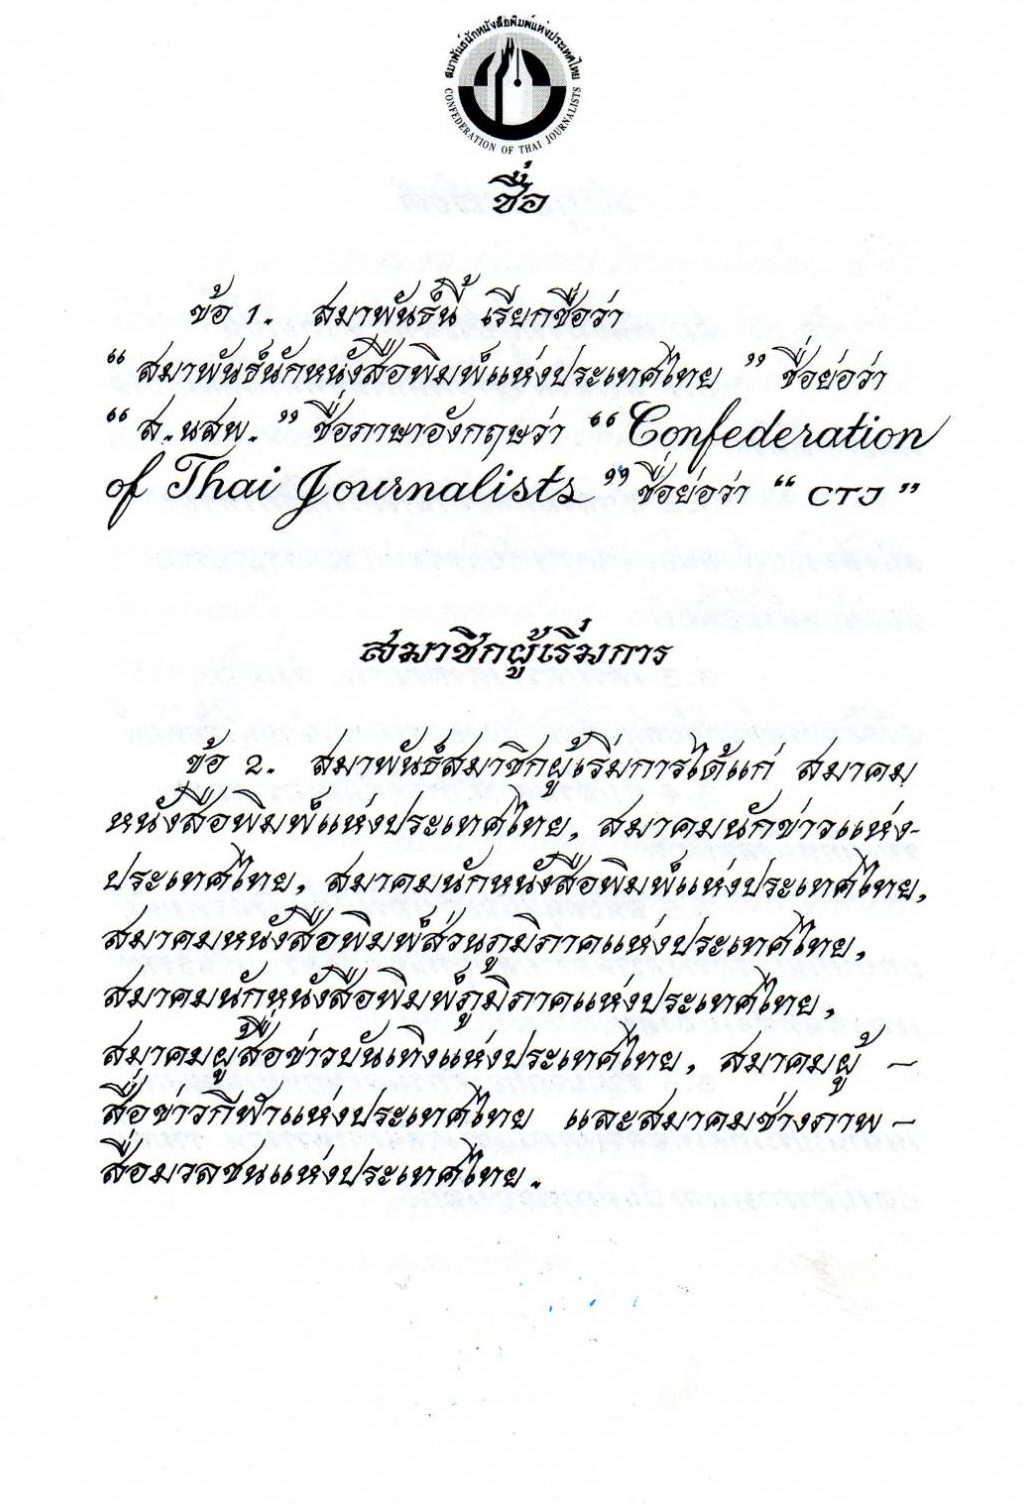 สมาพันธ์นักหนังสือพิมพ์แห่งประเทศไทย
CONFEDERATION OF THAI JOURNALISTS
ชื่อ
ข้อ 1. สมาพันธ์นี้ เรียกชื่อว่า
“ สมาพันธ์นักหนังสือพิมพ์แห่งประเทศไทย ” ชื่อย่อว่า
“ ส.นสพ. ” ชื่อภาษาอังกฤษว่า “ Confederation
of Thai Journalists ” ชื่อย่อว่า “ CTJ ”
สมาชิกผู้เริ่มการ
ข้อ 2. สมาพันธ์สมาชิกผู้เริ่มการได้แก่ สมาคม
หนังสือพิมพ์แห่งประเทศไทย, สมาคมนักข่าวแห่ง-
ประเทศไทย, สมาคมนักหนังสือพิมพ์แห่งประเทศไทย,
สมาคมหนังสือพิมพ์ส่วนภูมิภาคแห่งประเทศไทย,
สมาคมนักหนังสือพิมพ์ภูมิภาคแห่งประเทศไทย,
สมาคมผู้สื่อข่าวบันเทิงแห่งประเทศไทย, สมาคมผู้ –
สื่อข่าวกีฬาแห่งประเทศไทย และสมาคมช่างภาพ –
สื่อมวลชนแห่งประเทศไทย.